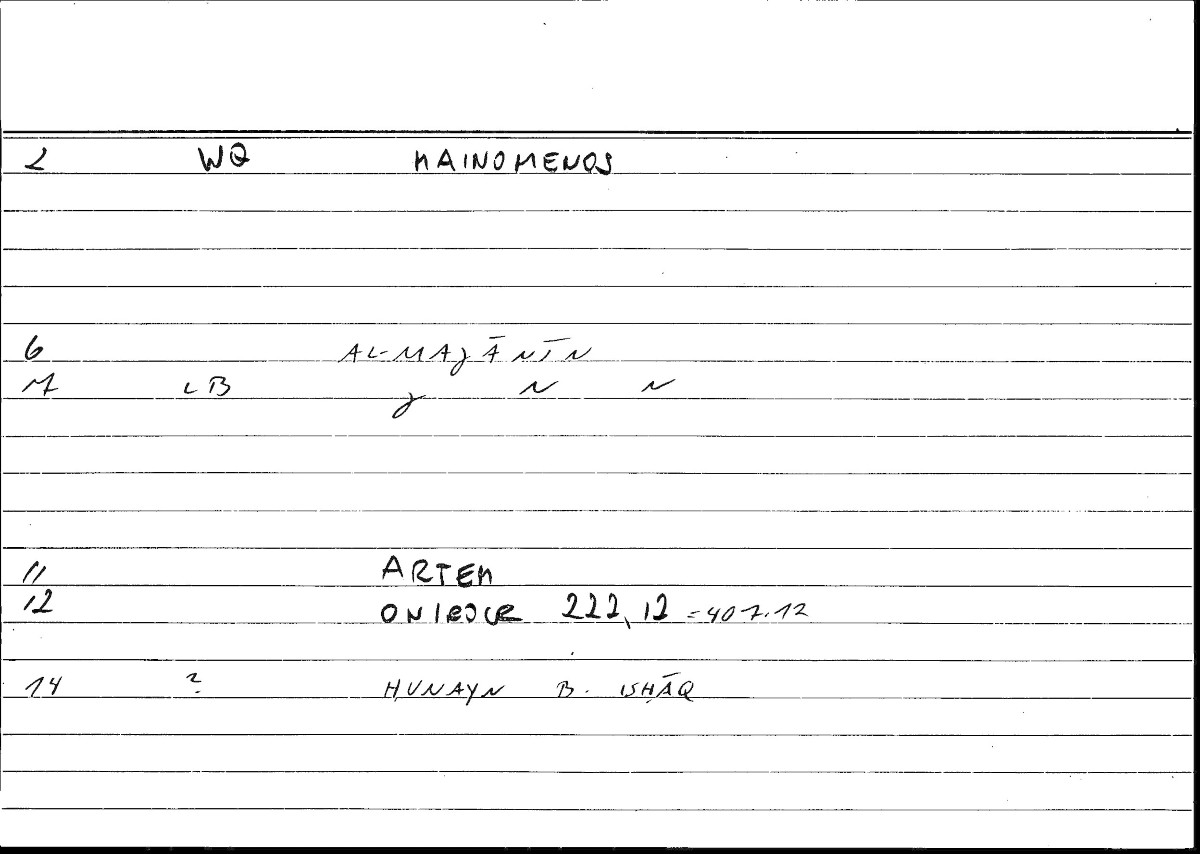 2 WQ MAINOMENOS
6 AL-MAJĀNĪN
7 LB J N N
11 ARTEM
12 ONIROCR 222,12 = 407.12
14 ? ḤUNAYN B. ISḤĀQ